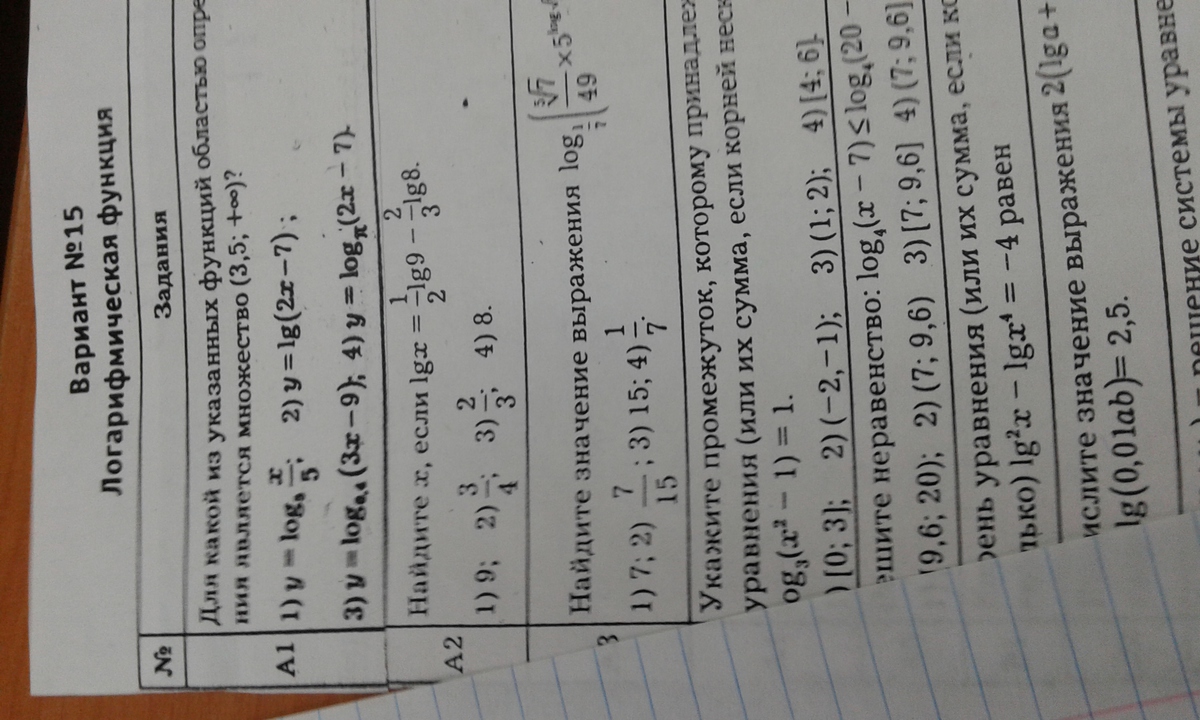 Вариант №15
Логарифмическая функция
№ Задания
А1 Для какой из указанных функций областью опре
ния является множество (3,5; +∞)?
1) y = log₉ x/5; 2) y = lg(2x−7) ;
3) y = log₀,₄ (3x−9); 4) y = log_π (2x − 7).
А2 Найдите x, если lgx = 1/2 lg9 − 2/3 lg8.
1) 9; 2) 3/4; 3) 2/3; 4) 8.
3 Найдите значение выражения log_1/7 (⁵√7/49 × 5^log
1) 7; 2) 7/15 ; 3) 15; 4) 1/7.
Укажите промежуток, которому принадлеж
уравнения (или их сумма, если корней неск
og₃(x² − 1) = 1.
) [0; 3]; 2) (−2, −1); 3) (1; 2); 4) [4; 6].
ешите неравенство: log₄(x − 7) ≤ log₄(20 −
(9,6; 20); 2) (7; 9,6) 3) [7; 9,6] 4) (7; 9,6]
рень уравнения (или их сумма, если ко
лько) lg²x − lgx⁴ = −4 равен
ислите значение выражения 2(lga +
lg(0,01ab)= 2,5.
решение системы уравне